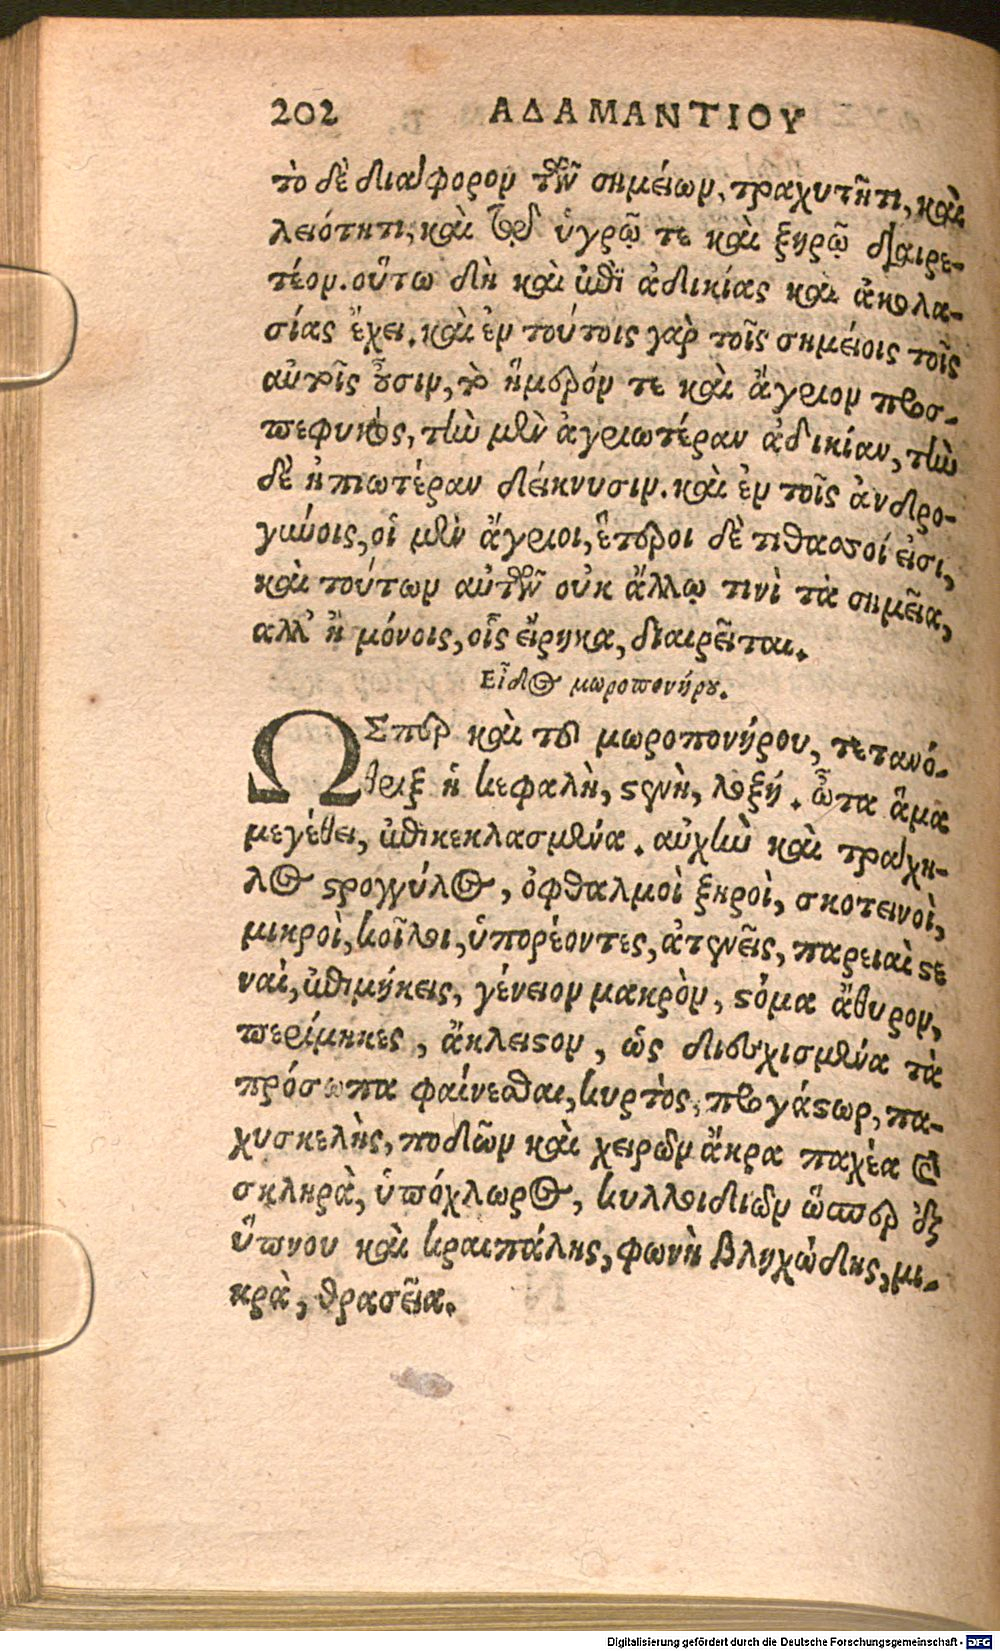 202 ΑΔΑΜΑΝΤΙΟΥ
τὸ δὲ διάφορον τῶν σημείων, τραχυτῆτι, καὶ
λειότητι, καὶ τῷ ὑγρῷ τε καὶ ξηρῷ διαιρε-
τέον. οὕτω δὴ καὶ ἐπὶ ἀδικίας καὶ ἀκολα-
σίας ἔχει. καὶ ἐν τούτοις γὰρ τοῖς σημείοις τοῖς
αὐτοῖς οὖσιν, τὸ ἥμερόν τε καὶ ἄγριον προσ-
πεφυκὸς, τὴν μὲν ἀγριωτέραν ἀδικίαν, τὴν
δὲ ἠπιωτέραν δείκνυσιν. καὶ ἐν τοῖς ἀνδρο-
γύνοις, οἱ μὲν ἄγριοι, ἕτεροι δὲ τιθασσοί εἰσι,
καὶ τούτων αὐτῶν οὐκ ἄλλῳ τινὶ τὰ σημεῖα,
ἀλλ' ἢ μόνοις, οἷς εἴρηκα, διαιρεῖται.
Εἶδος μωροπονήρου.
ΩΣπερ καὶ τοῦ μωροπονήρου, τετανό-
θριξ ἡ κεφαλὴ, στενὴ, λοξή. ὦτα ἅμα
μεγέθει, ἐπικεκλασμένα. αὐχὴν καὶ τράχη-
λος στρογγύλος, ὀφθαλμοὶ ξηροὶ, σκοτεινοὶ,
μικροὶ, κοῖλοι, ὑπορέοντες, ἀτενεῖς, παρειαὶ στε
ναὶ, ἐπιμήκεις, γένειον μακρὸν, στόμα ἄθυρον,
περίμηκες, ἄκλειστον, ὡς διεσχισμένα τὰ
πρόσωπα φαίνεσθαι, κυρτὸς, προγάστωρ, πα-
χυσκελὴς, ποδῶν καὶ χειρῶν ἄκρα παχέα καὶ
σκληρὰ, ὑπόχλωρος, κυλλοιδιῶν ὥσπερ ἐξ
ὕπνου καὶ κραιπάλης, φωνὴ βληχώδης, μι-
κρὰ, θρασεῖα.
Digitalisierung gefördert durch die Deutsche Forschungsgemeinschaft - DFG